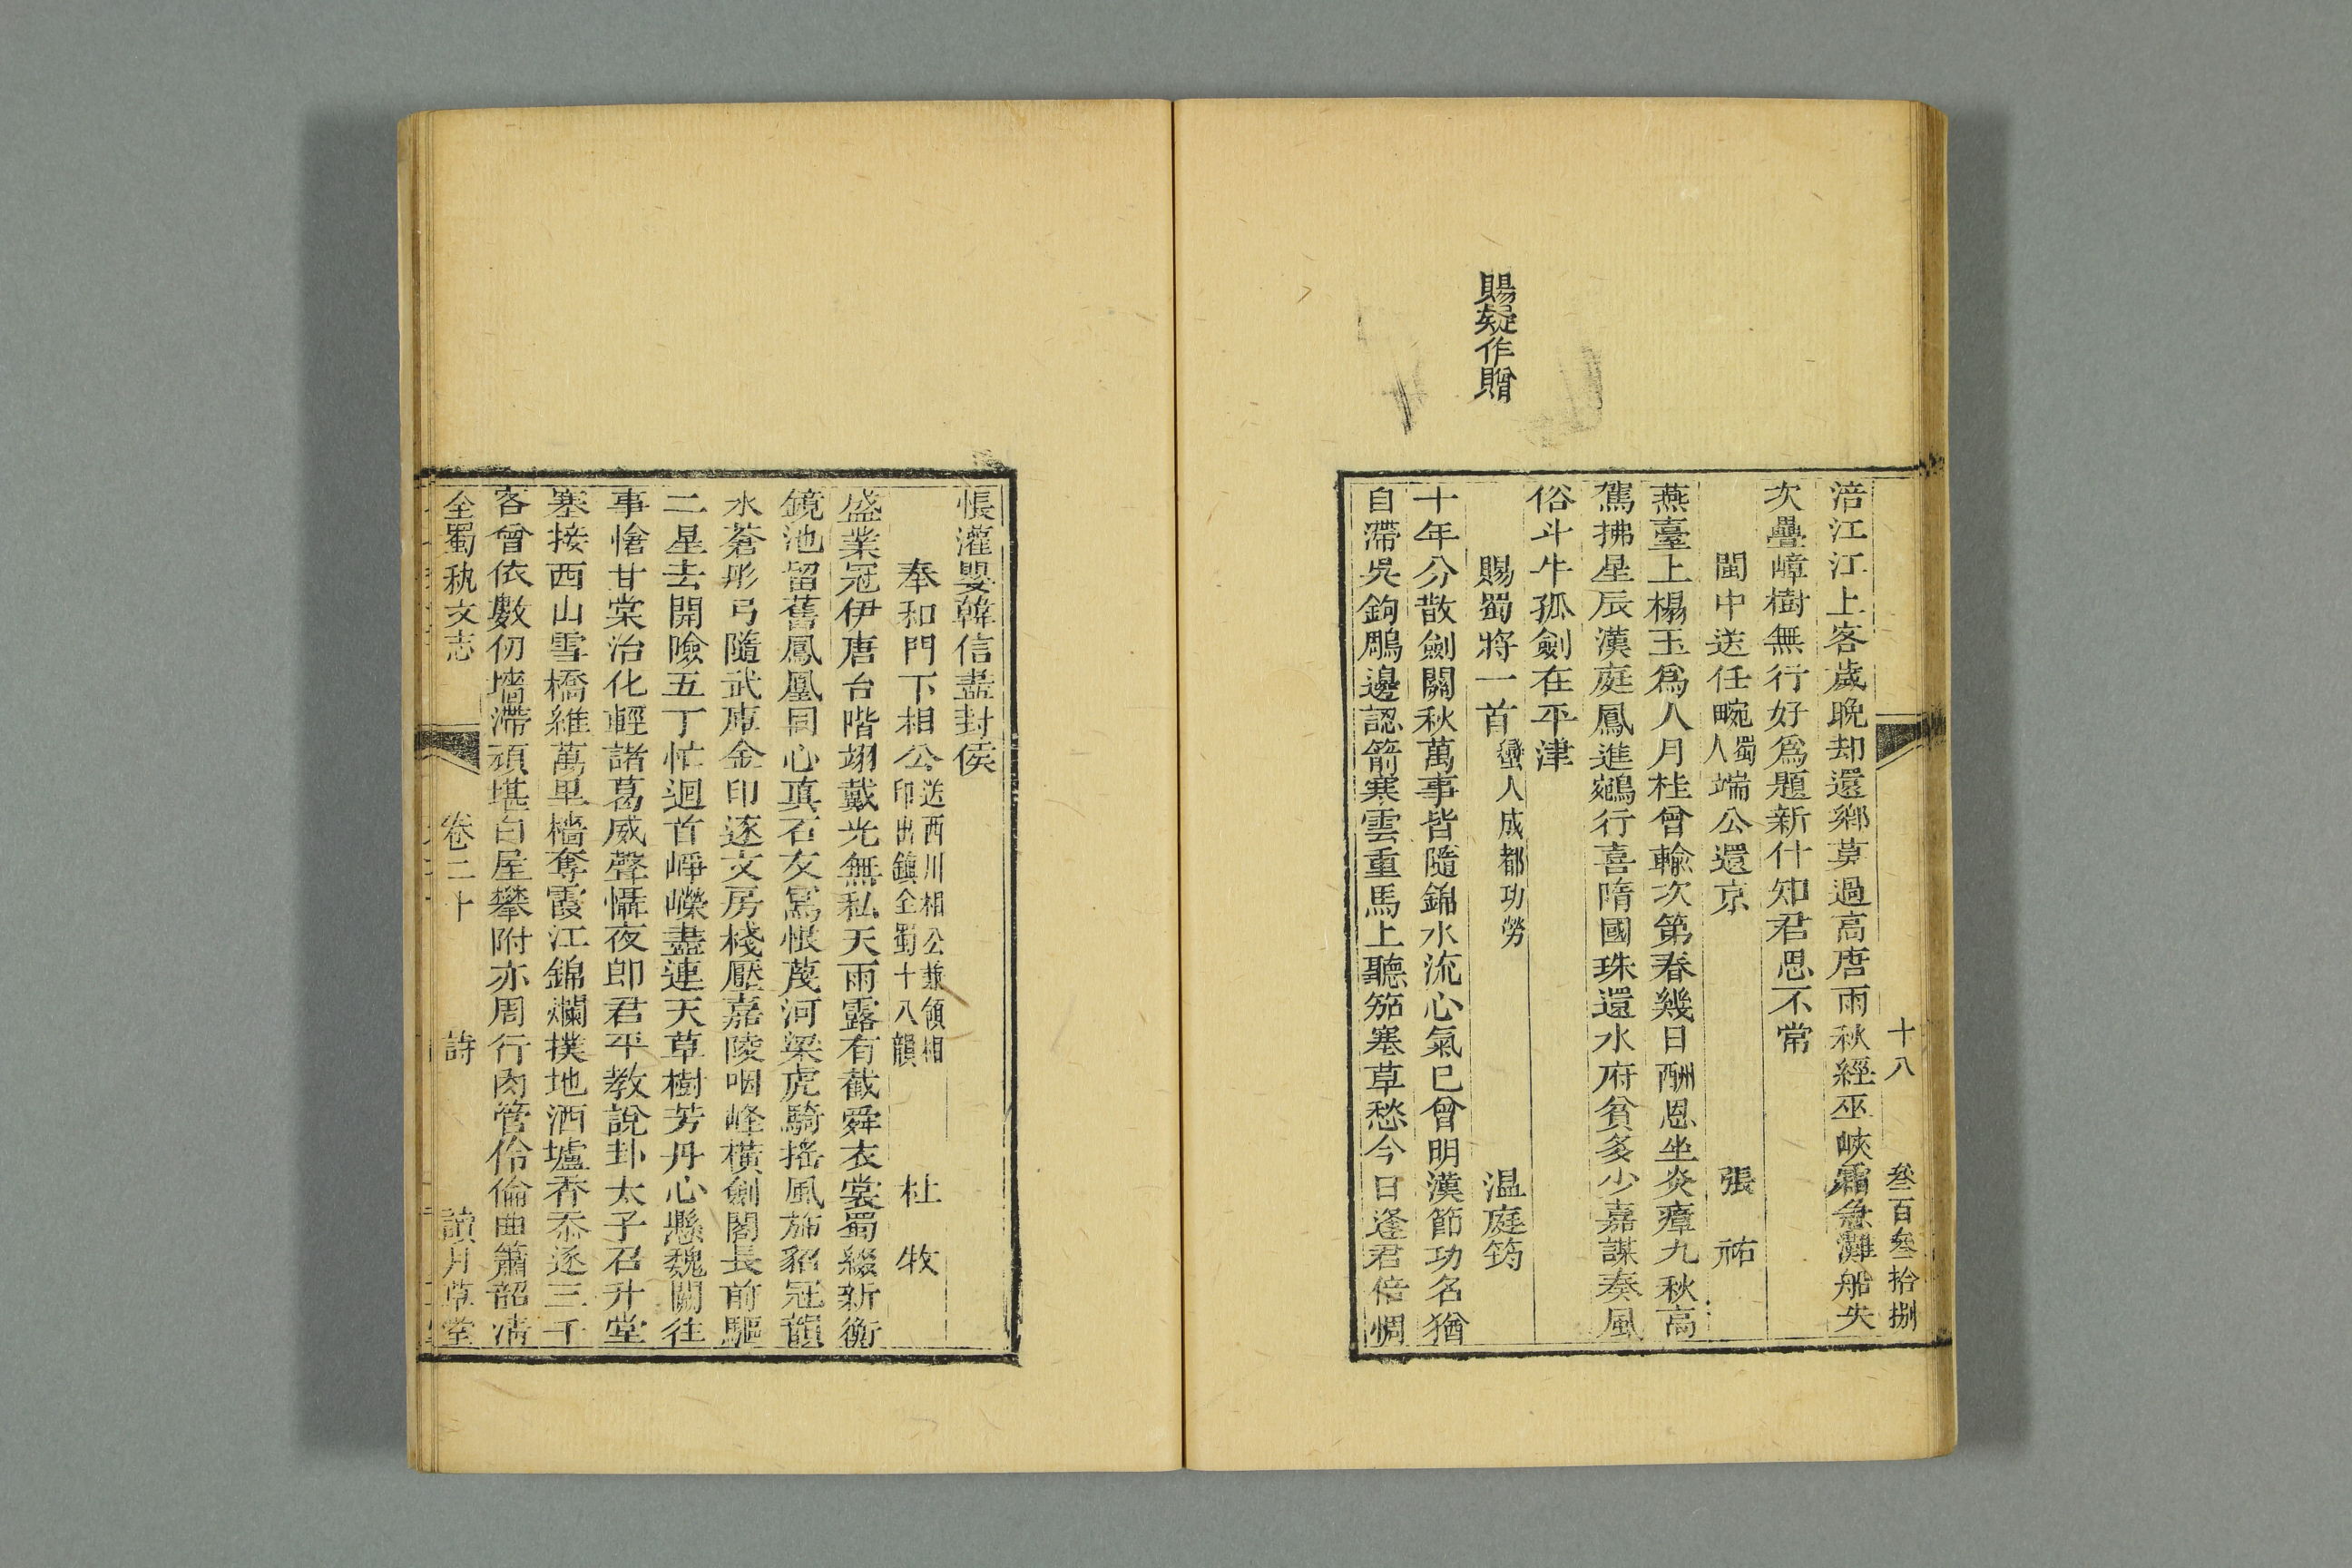 十八
叁百叁拾捌
涪江江上客歲晚却還鄉莫過高唐雨秋經巫峽霜急灘船失
次疊嶂樹無行好為題新什知君思不常
閩中送任畹蜀人端公還京 張祐
燕臺上榻玉爲人月桂曾輸次第春幾日酬恩坐炎瘴九秋高
駕拂星辰漢庭鳳進鵷行喜隋國珠還水府貧多少嘉謀奏風
俗斗牛孤劍在平津
賜疑作贈
賜蜀將一首蠻人成都功勞 温庭筠
十年分散劍關秋萬事皆隨錦水流心氣已曾明漢節功名猶
自滯吳鉤鵰邊認箭寒雲重馬上聽笳塞草愁今日逢君倍惆
悵灌嬰韓信盡封侯
奉和門下相公送西川相公兼領相印出鎮全蜀十八韻 杜牧
盛業冠伊唐台階翊戴光無私天雨露有截舜衣裳蜀綴新衡
鏡池留舊鳳凰同心真石友寫悵蔑河梁虎騎搖風旆貂冠韻
水蒼彤弓隨武庫金印逐文房棧壓嘉陵咽峰橫劍閣長前驅
二星去開險五丁忙迴首崢嶸盡連天草樹芳丹心懸魏闕往
事愴甘棠治化輕諸葛威聲懾夜郎君平教說卦太子召升堂
塞接西山雪橋維萬里檣奪霞江錦爛撲地酒壚香忝逐三千
客曾依數仞墻滯頑堪白屋攀附亦周行肉管伶倫曲簫韶清
全蜀秇文志 卷二十 詩 讀月草堂